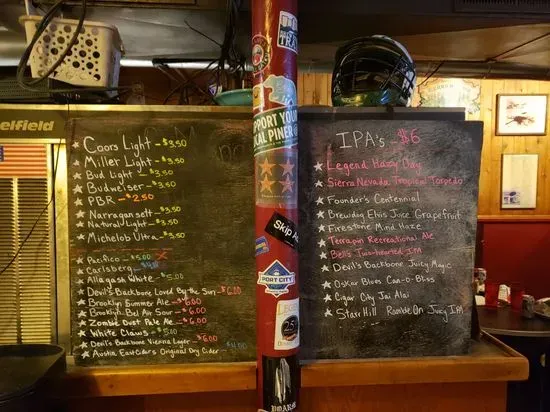 elfield
Coors Light - $3.50
Miller Light - $3.50
Bud Light - $3.50
Budweiser - $3.50
PBR - $2.50
Narragansett - $3.50
Natural Light - $3.50
Michelob Ultra - $3.50
Pacifico - $5.00
Carlsberg
Allagash White - $5.00
Devil's Backbone Loved By the Sun - $6.00
Brooklyn Summer Ale - $6.00
Brooklyn Bel Air Sour - $6.00
Zombie Dust Pale Ale - $6.00
White Claws - $5.00
Devil's Backbone Vienna Lager - $6.00
Austin EastCiders Original Dry Cider
SUPPORT YOUR
LOCAL PINER
Skip
PORT CITY
25
IPA's $6
Legend Hazy Day
Sierra Nevada Tropical Torpedo
Founder's Centennial
Brewdog Elvis Juice Grapefruit
Firestone Mind Haze
Terrapin Recreational Ale
Bells Two-hearted IPA
Devil's Backbone Juicy Magic
Oskar Blues Can-o-Bliss
Cigar City Jai Alai
Starr Hill Ramble On Juicy IPA